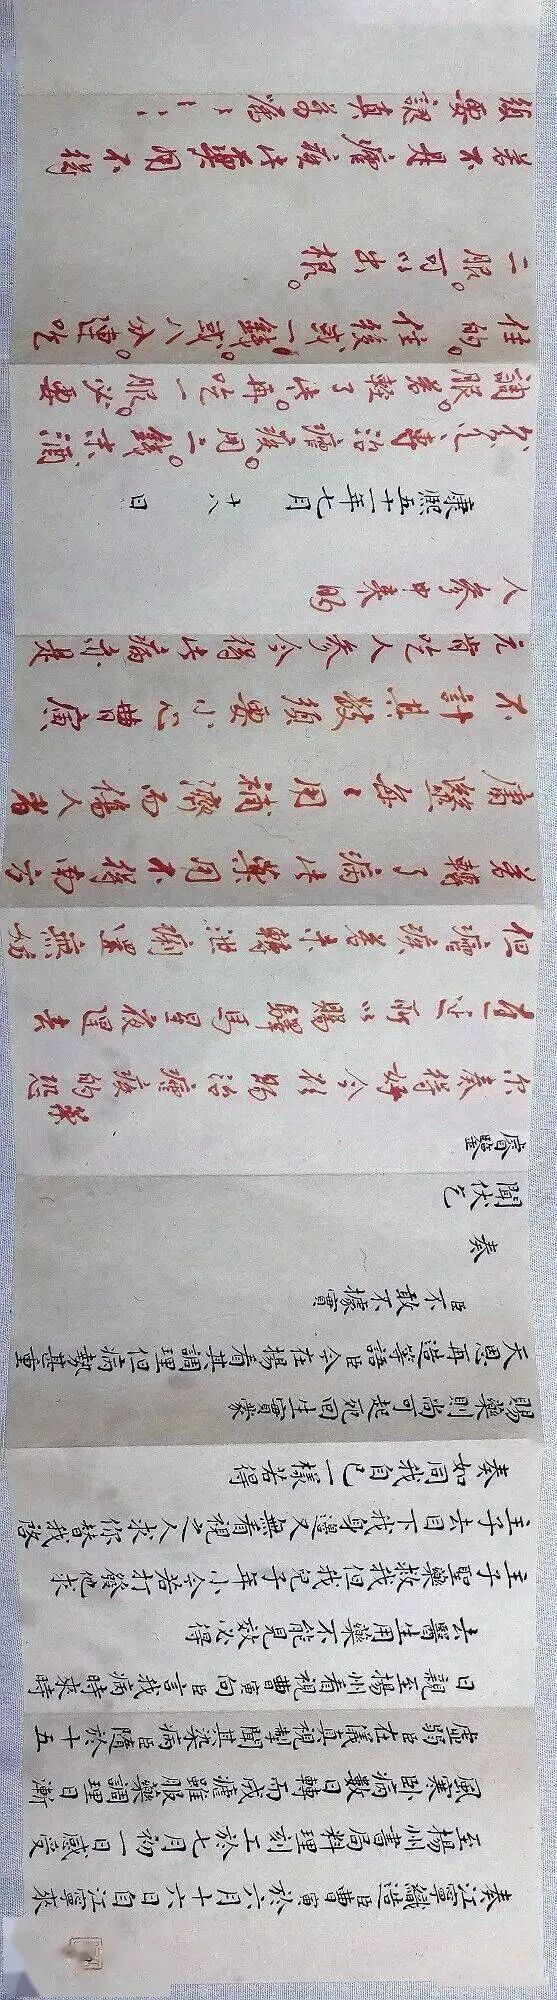 奏江寧織造臣曹寅於六月十六日自江寧來
至揚州書局料理刻工於七月初一日感受
風寒臥病數日轉而成瘧雖服藥調理日漸
虛弱臣在儀真視掣聞其染病臣隨於十五
日親至揚州看視曹寅向臣言我病時來時
去醫生用藥不能見效必得
主子聖藥救我但我兒子年小今若打發他求
主子去目下我身邊又無看視之人求你替我啓
奏如同我自己一樣若得
賜藥則尚可起死回生實蒙
天恩再造等語臣今在揚看其調理但病勢甚重
臣不敢不據實
奏
聞伏乞
睿鑒
尔奏得好今欲賜治瘧疾的藥恐
遲延所以賜驛馬星夜趕去
但瘧疾若未轉泄痢還無妨
若轉了病此藥用不得南方
庸醫每每用補濟而傷人者
不計其數須要小心曹寅
元肯吃人參今得此病亦是
人參中來的
康熙五十一年七月十八日
專治瘧疾。用二錢末酒
調服。若輕了些。再吃一服。必要
住的。住後或一錢。或八分。連吃
二服。可以出根。
若不是瘧疾此藥用不得
須要認真萬囑